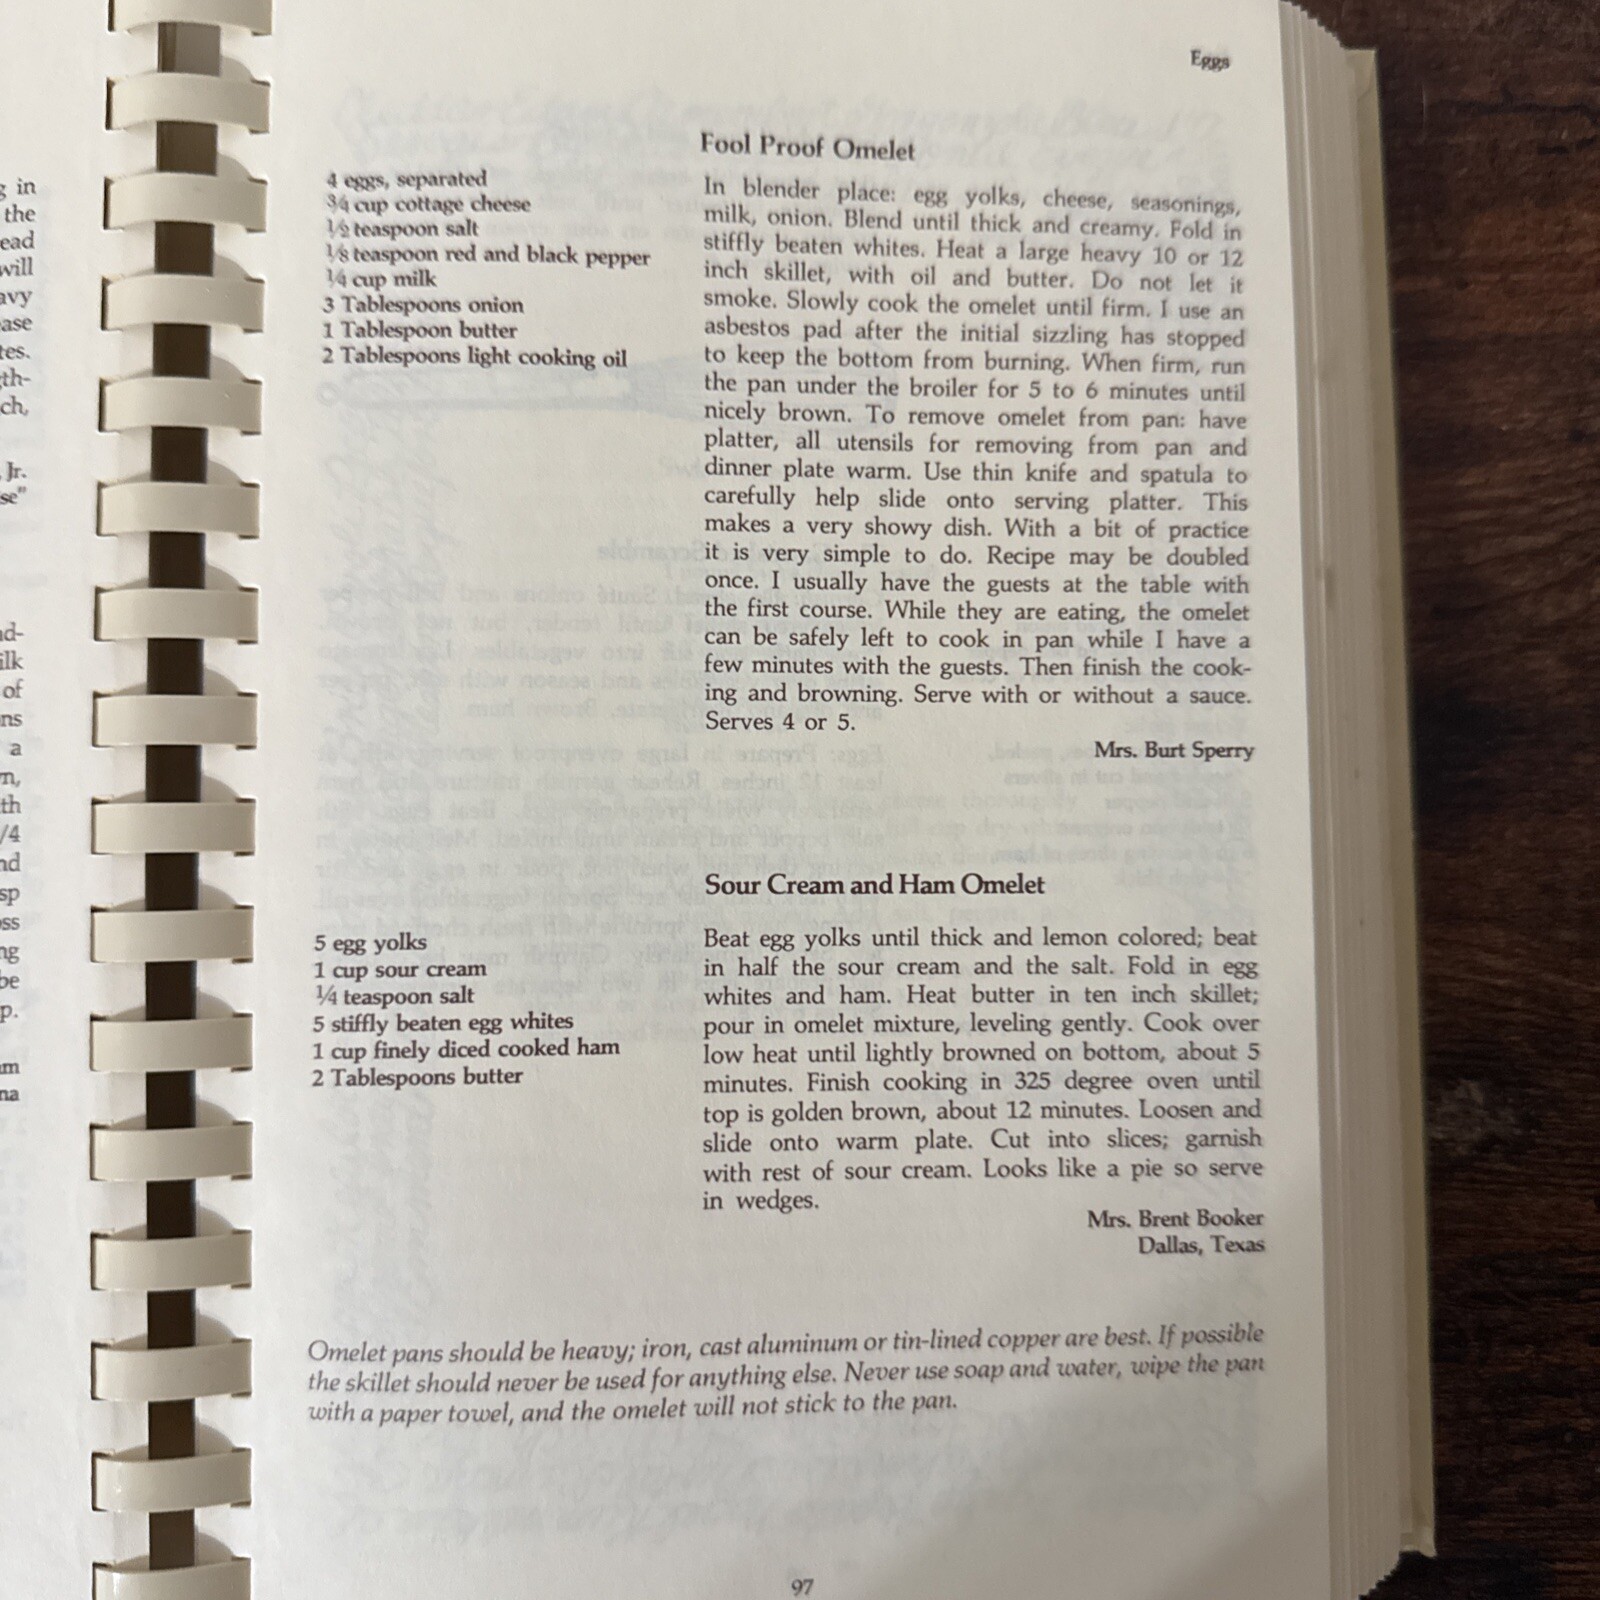 Eggs
Fool Proof Omelet
4 eggs, separated
¾ cup cottage cheese
½ teaspoon salt
⅛ teaspoon red and black pepper
¼ cup milk
3 Tablespoons onion
1 Tablespoon butter
2 Tablespoons light cooking oil
In blender place: egg yolks, cheese, seasonings,
milk, onion. Blend until thick and creamy. Fold in
stiffly beaten whites. Heat a large heavy 10 or 12
inch skillet, with oil and butter. Do not let it
smoke. Slowly cook the omelet until firm. I use an
asbestos pad after the initial sizzling has stopped
to keep the bottom from burning. When firm, run
the pan under the broiler for 5 to 6 minutes until
nicely brown. To remove omelet from pan: have
platter, all utensils for removing from pan and
dinner plate warm. Use thin knife and spatula to
carefully help slide onto serving platter. This
makes a very showy dish. With a bit of practice
it is very simple to do. Recipe may be doubled
once. I usually have the guests at the table with
the first course. While they are eating, the omelet
can be safely left to cook in pan while I have a
few minutes with the guests. Then finish the cook-
ing and browning. Serve with or without a sauce.
Serves 4 or 5.
Mrs. Burt Sperry
Sour Cream and Ham Omelet
5 egg yolks
1 cup sour cream
¼ teaspoon salt
5 stiffly beaten egg whites
1 cup finely diced cooked ham
2 Tablespoons butter
Beat egg yolks until thick and lemon colored; beat
in half the sour cream and the salt. Fold in egg
whites and ham. Heat butter in ten inch skillet;
pour in omelet mixture, leveling gently. Cook over
low heat until lightly browned on bottom, about 5
minutes. Finish cooking in 325 degree oven until
top is golden brown, about 12 minutes. Loosen and
slide onto warm plate. Cut into slices; garnish
with rest of sour cream. Looks like a pie so serve
in wedges.
Mrs. Brent Booker
Dallas, Texas
Omelet pans should be heavy; iron, cast aluminum or tin-lined copper are best. If possible
the skillet should never be used for anything else. Never use soap and water, wipe the pan
with a paper towel, and the omelet will not stick to the pan.
97